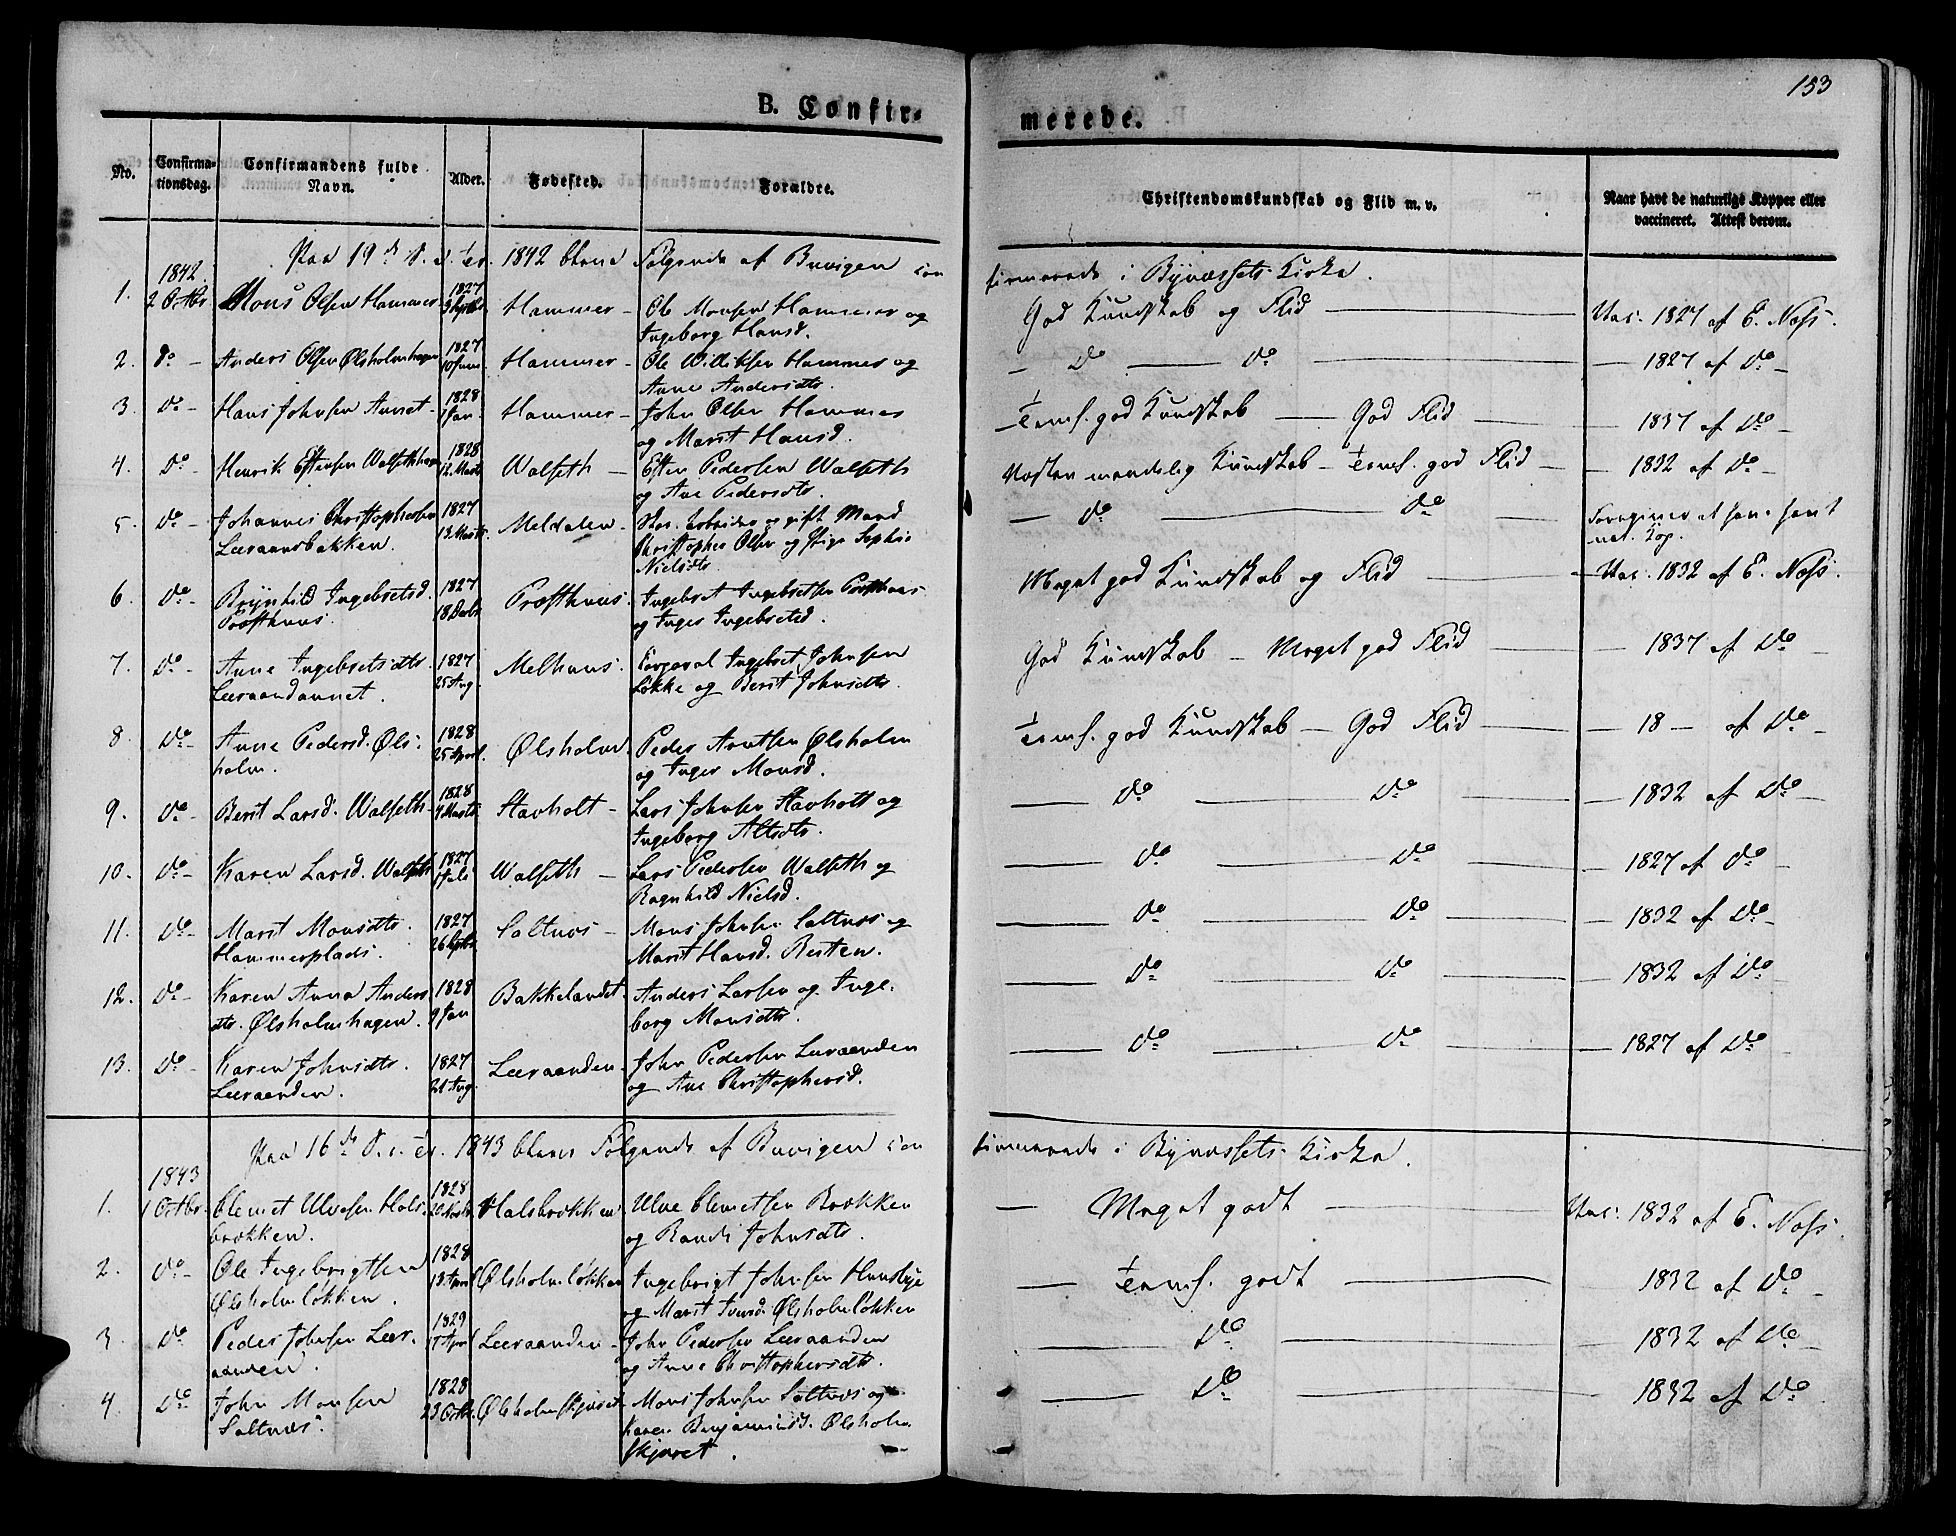 153
B. Confir- merede.
No. Confirma- tionsdag. Confirmandens fulde Navn. Alder. Fødested. Forældre. Christendomskundskab og Flid m. v. Naar havt de naturlige Kopper eller vaccineret. Attest derom.
Paa 19de S. e. Tr. 1842 bleve Følgende af Buvigen con firmerede i Bynæssets Kirke.
1. 1842 2 Octbr. Mons Olsen Hammer 1827 Hammer Ole Monsen Hammer og God Kundskab og Flid Vac. 1827 af E. Næss.
Ingeborg Hansd.
2. Do Anders Olsen Ølsholmhagen 1827 10 Juni Hammer Ole Hammer og Do Do 1827 af Do
Anne Andersdtr.
3. Do Hans Johnsen Aunet 1828 Jan. Hammer John Olsen Hammer Temf. god Kundskab God Flid 1837 af Do
og Marit Hansd.
4. Do Henrik Estensen Walsethhagen 1828 12 Marts Walseth Esten Pedersen Walseth Kundskab Temf. god Flid 1832 af Do
og Ane Pedersdtr.
5. Do Johannes Christophersen 1827 13 Marts Meldalen gift Mand Do Do
Leeraansbakken. Christopher Olsen og Sophie nat. Kop.
Nielsdtr.
6. Do Brynhild Ingebretsd. 1827 18 Decbr. Præsthuus Ingebret Ingebretsen Præsthuus Meget god Kundskab og Flid Vac. 1832 af E. Næss.
Præsthuus. og Inger Ingebretsd.
7. Do Anne Ingebretsdtr. 1827 25 Aug. Melhuus Corporal Ingebret Johnsen God Kundskab Meget god Flid 1837 af Do
Leeraandaunet. Løkke og Berit Johnsdtr.
8. Do Anne Pedersd. Øls- 1828 25 April Ølsholm Peder Arntsen Ølsholm Temf. god Kundskab God Flid 18 — af Do
holm. og Inger Monsd.
9. Do Berit Larsd. Walseth 1828 Marts Stavholt Lars Johnsen Stavholt og Do Do 1832 af Do
Ingeborg
10. Do Karen Larsd. Walseth 1827 Juli Walseth Lars Pedersen Walseth og Do Do 1827 af Do
Ragnhild Nielsd.
11. Do Marit Monsdtr. 1827 26 Saltnæs Mons Johnsen Saltnæs og Do Do 1832 af Do
Hammersplads. Marit Hansd. Resten.
12. Do Karen Anna Anders 1828 9 Jan Bakkelandet Anders Larsen og Inge- Do Do 1832 af Do
dtr. Ølsholmhagen. borg Monsdtr.
13. Do Karen Johnsdtr. 1827 21 Aug. Leeraanden John Pedersen Leeraanden Do Do 1827 af Do
Leeraanden. og Ane Christophersd.
Paa 16de S. e. Tr. 1843 bleve Følgende af Buvigen con firmerede i Bynæssets Kirke.
1. 1843 1 Octbr. Clemet Ulvesen Hals- 1828 Halsbrækken Ulve Clemetsen Brækken Meget godt Vac. 1832 af E. Næss.
brækken. og Randi Johnsdtr.
2. Do Ole Ingebrigtsen 1828 18 April Ølsholmløkken Ingebrigt Johnsen Huusbye Temf. godt 1832 af Do
Ølsholmløkken. og Marit Iversd. Ølsholmløkken
3. Do Peder Johnsen Leer- 1829 April Leeraanden John Pedersen Leeraanden Do 1832 af Do
aanden. og Anne Christophersdtr.
4. Do John Monsen 1828 23 Octbr. Ølsholmskjæret Mons Johnsen Saltnæs og Do 1832 af Do
Saltnæs. Karen Benjaminsd. Ølsholm-
skjæret.